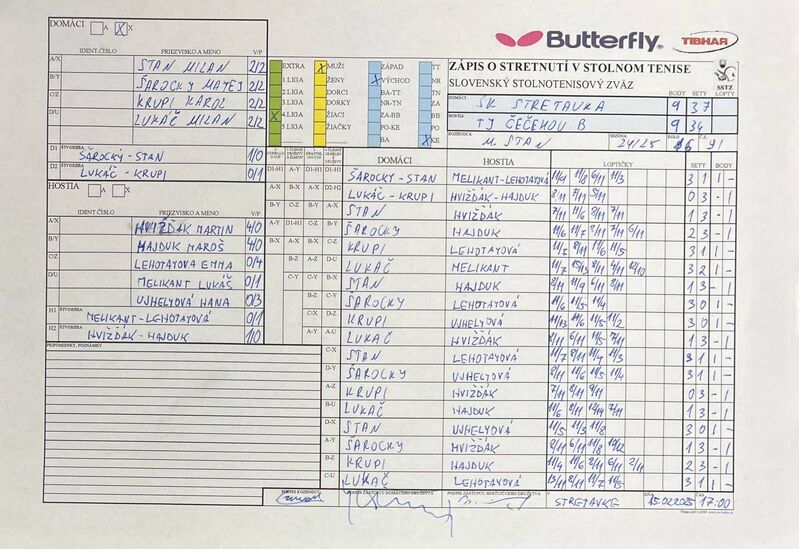 DOMÁCI A X X
IDENT.ČÍSLO PRIEZVISKO A MENO V/P
A/X STAN MILAN 2/2
B/Y ŠAROCKY MATEJ 2/2
C/Z KRUPI KAROL 2/2
D/U LUKÁČ MILAN 2/2
D1 ŠTVORHRA ŠAROCKÝ-STAN 1/0
D2 ŠTVORHRA LUKÁČ - KRUPI 0/1
HOSTIA A X
IDENT.ČÍSLO PRIEZVISKO A MENO V/P
A/X HVIŽĎÁK MARTIN 4/0
B/Y HAJDUK MAROŠ 4/0
C/Z LEHOTAYOVA EMMA 0/4
D/U MELIKANT LUKÁŠ 0/1
UJHELYOVÁ HANA 0/3
H1 ŠTVORHRA MELIKANT-LEHOTAYOVÁ 0/1
H2 ŠTVORHRA HVIŽĎÁK-HAJDUK 1/0
PRIPOMIENKY, POZNÁMKY
EXTRA X MUŽI ZÁPAD TT
1 LIGA ŽENY X VÝCHOD NR
2 LIGA DORCI BA-TT BB
3 LIGA DORKY NR-TN ZA
X 4 LIGA ŽIACI ZA-BB
5 LIGA ŽIAČKY PO-KE BO
BA X KE
Butterfly TIBHAR
ZÁPIS O STRETNUTÍ V STOLNOM TENISE
SLOVENSKÝ STOLNOTENISOVÝ ZVÄZ SSTZ
BODY SETY LOPTY
DOMÁCI SK STRETAVKA 9 37
HOSTIA TJ ČEČEHOV B 9 34
ROZHODCA M. STAN SEZÓNA 24/25 KOLO 16 Č.Z. 91
DOMÁCI HOSTIA LOPTIČKY SETY BODY
D1-H1 ŠAROCKY - STAN MELIKANT-LEHOTAYOVÁ 11/9 11/8 6/11 11/3 3 1 1 -
D2-H2 LUKÁČ - KRUPI HVIŽĎÁK-HAJDUK 8/11 7/11 5/11 0 3 - 1
STAN HVIŽĎÁK 7/11 11/6 8/11 7/11 1 3 - 1
ŠAROCKY HAJDUK 2 3 - 1
KRUPI LEHOTAYOVÁ 11/7 8/11 11/6 11/5 3 1 1 -
LUKÁČ MELIKANT 3 2 1 -
STAN HAJDUK 8/11 11/9 6/11 8/11 1 3 - 1
ŠAROCKY LEHOTAYOVÁ 11/6 11/5 11/4 3 0 1 -
KRUPI UJHELYOVÁ 3 0 1 -
A-U LUKAČ HVIŽĎÁK 1 3 - 1
C-X STAN LEHOTAYOVÁ 11/7 8/11 11/4 11/3 3 1 1 -
D-Y ŠAROCKY UJHELYOVÁ 8/11 11/6 11/5 11/4 3 1 1 -
A-Z KRUPI HVIŽĎÁK 7/11 8/11 9/11 0 3 - 1
B-U LUKÁČ HAJDUK 11/6 8/11 12/14 7/11 1 3 - 1
D-X STAN UJHELYOVÁ 11/5 11/3 11/8 3 0 1 -
A-Y ŠAROCKY HVIŽĎÁK 1 3 - 1
B-Z KRUPI HAJDUK 11/4 6/11 11/8 6/11 2/11 2 3 - 1
C-U LUKÁČ LEHOTAYOVÁ 13/11 8/11 11/7 11/5 3 1 1 -
PODPIS ROZHODCU PODPIS ZÁSTUPCU DOMÁCEHO DRUŽSTVA PODPIS ZÁSTUPCU HOSŤUJÚCEHO DRUŽSTVA V STRETAVKE DŇA 15.02.2025 ČAS 17:00